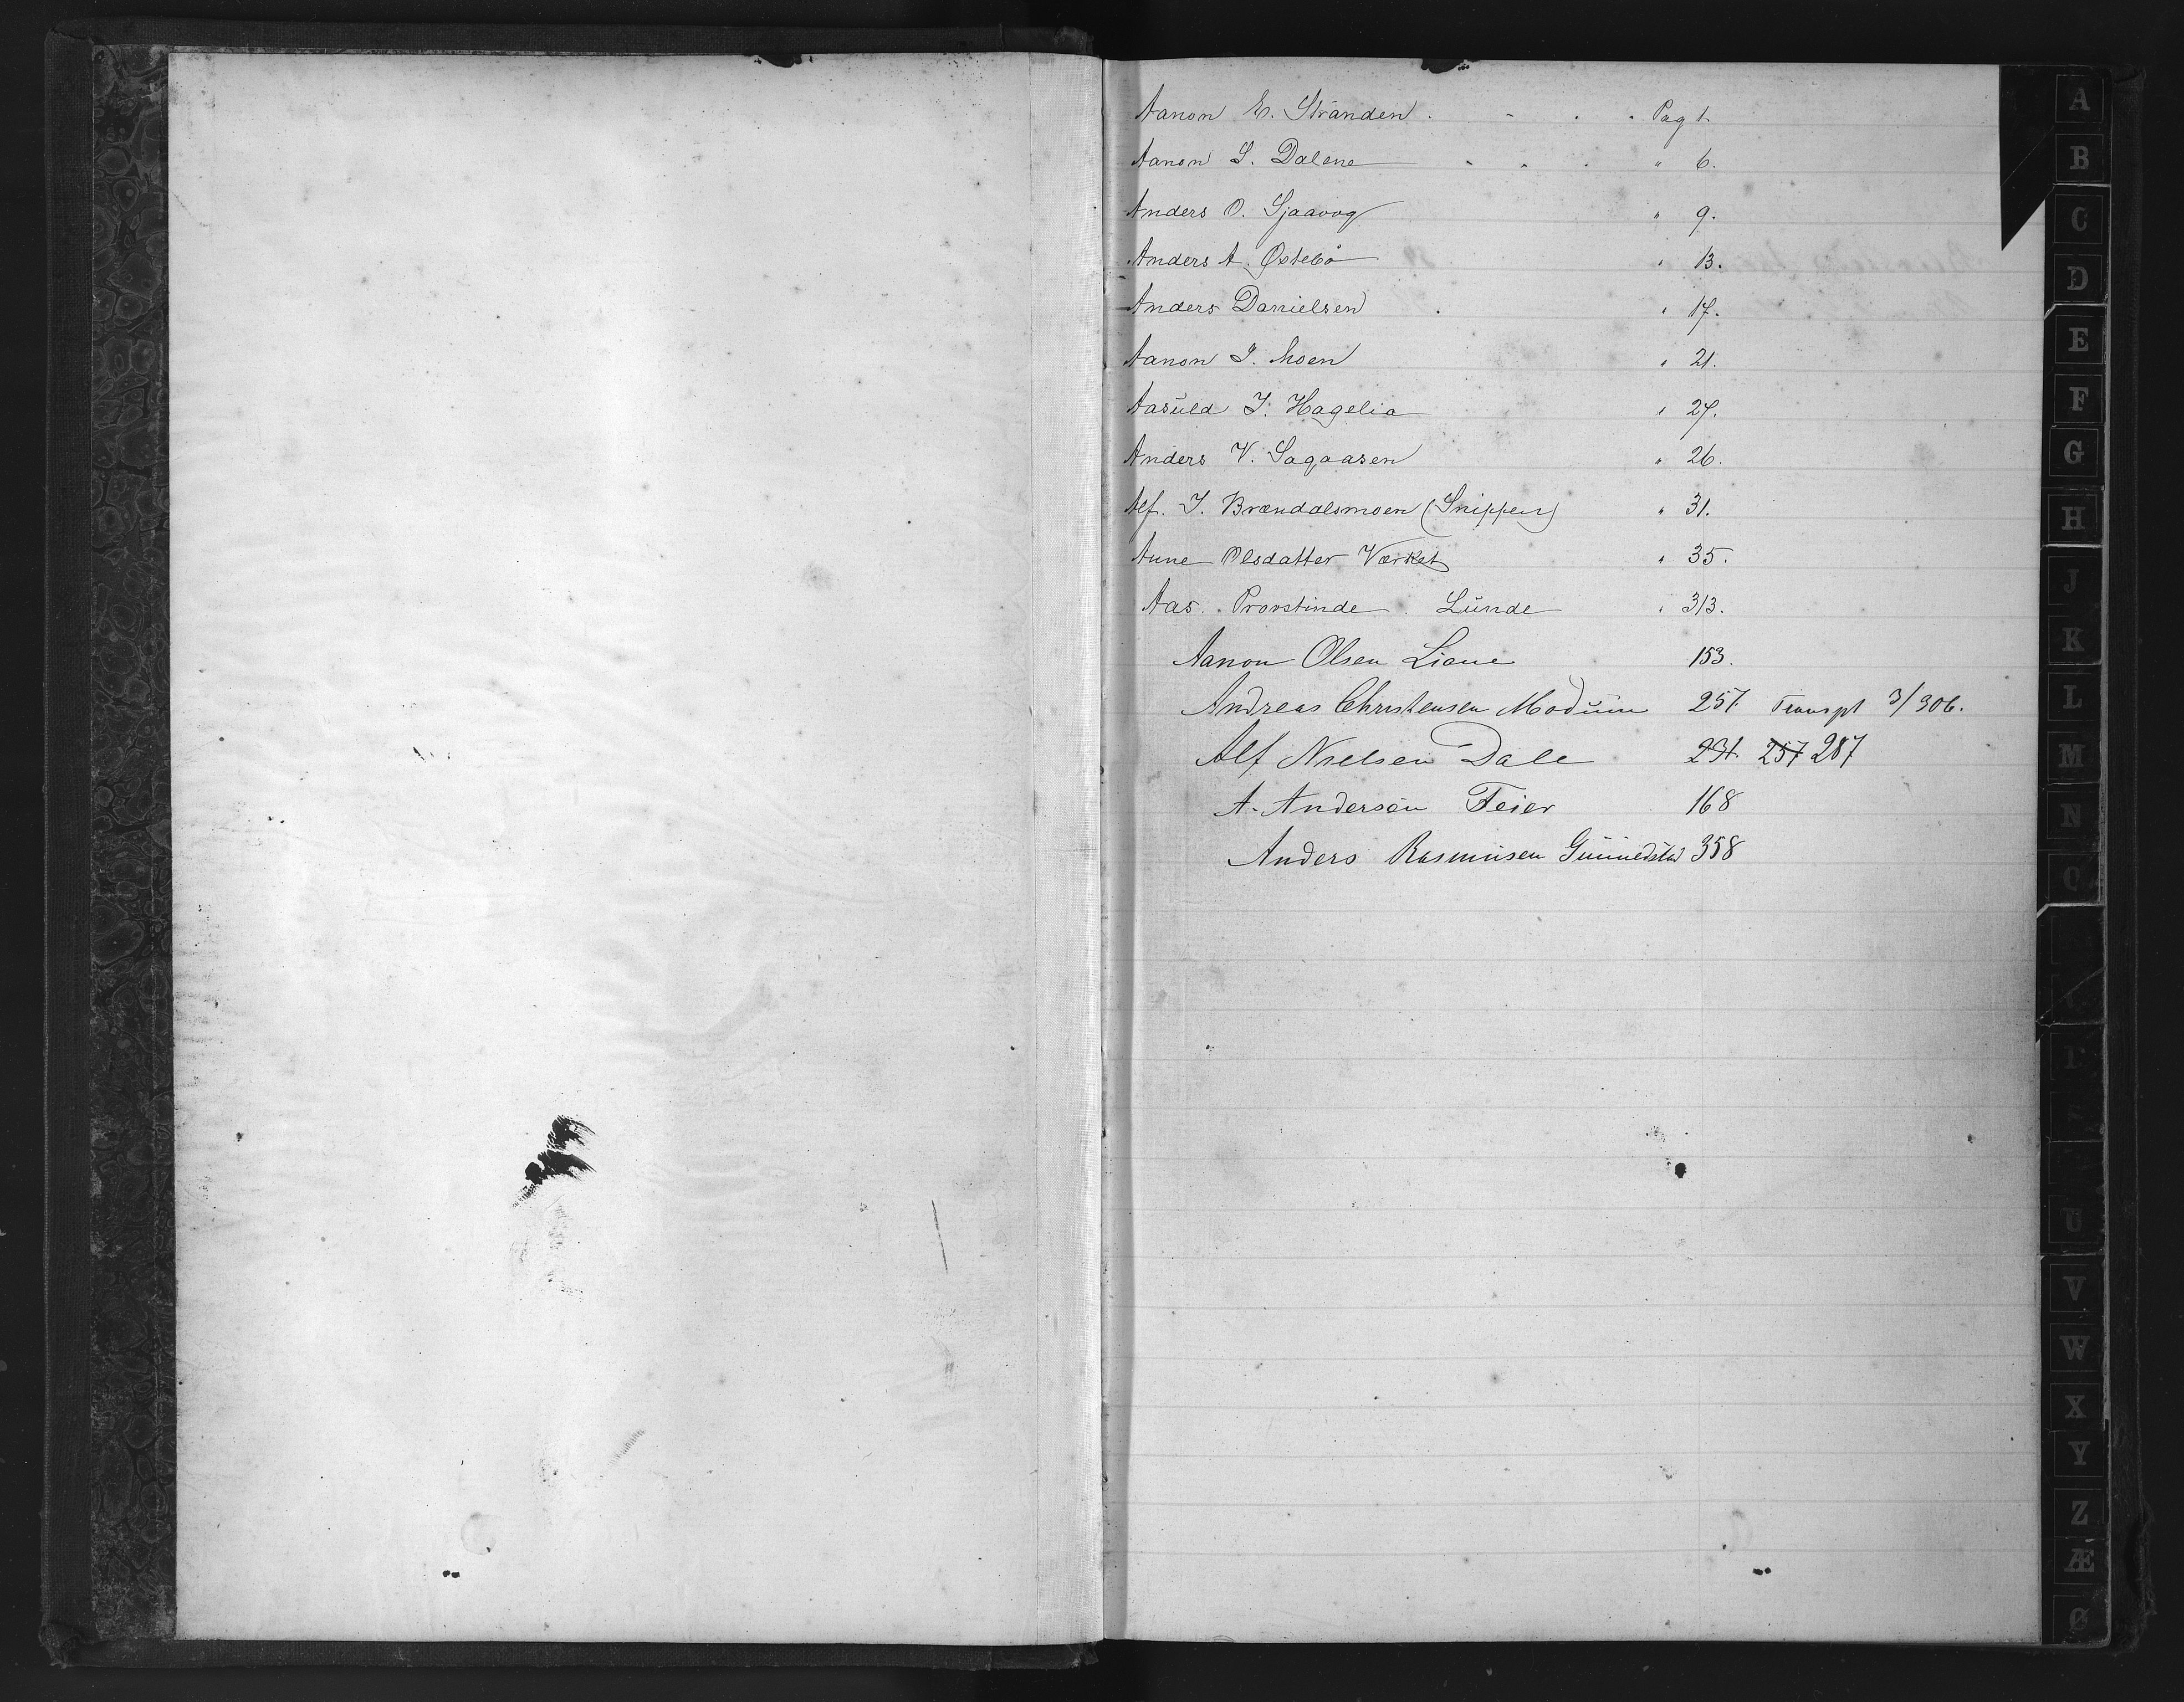 Aanon E. Stranden . - . . Pag 1.
Aanon S. Dalene - . . " 6.
Anders O. Sjaavog " 9.
Anders A. Østebö " 13.
Anders Danielsen . " 17.
Aanon I. Moen " 21.
Aasuld I. Hagelia " 27.
Anders V. Sagaasen " 26.
Alf. I. Brændalsmoen (Snippen) " 31.
Anne Olsdatter Værket " 35.
Aas. Provstinde. Lunde " 313.
Aanon Olsen Liane 153.
Andreas Christensen Modum 257. Transpt 3/306.
Alf Nielsen Dale 231. 257 287
A. Andersen Feier 168
Anders Rasmusen 358
A
B
C
D
E
F
G
H
J
K
L
M
N
O
U
V
W
X
Y
Z
Æ
Ø